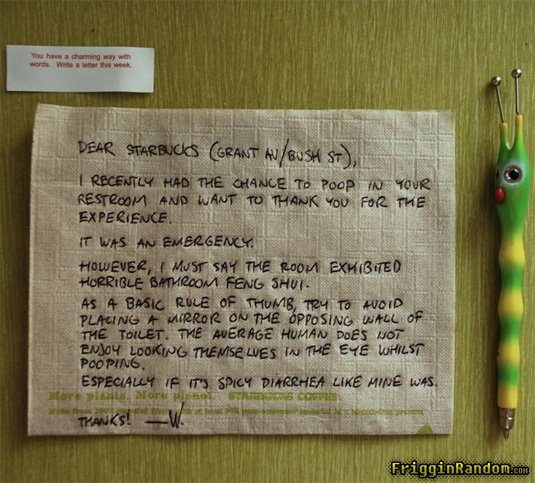 You have a charming way with
words. Write a letter this week.
DEAR STARBUCKS (GRANT AV/BUSH ST),
I RECENTLY HAD THE CHANCE TO POOP IN YOUR
RESTROOM AND WANT TO THANK YOU FOR THE
EXPERIENCE.
IT WAS AN EMERGENCY.
HOWEVER, I MUST SAY THE ROOM EXHIBITED
HORRIBLE BATHROOM FENG SHUI.
AS A BASIC RULE OF THUMB, TRY TO AVOID
PLACING A MIRROR ON THE OPPOSING WALL OF
THE TOILET. THE AVERAGE HUMAN DOES NOT
ENJOY LOOKING THEMSELVES IN THE EYE WHILST
POOPING.
ESPECIALLY IF IT'S SPICY DIARRHEA LIKE MINE WAS.
More plants. More planet. STARBUCKS COFFEE
THANKS! —W.
FrigginRandom.com